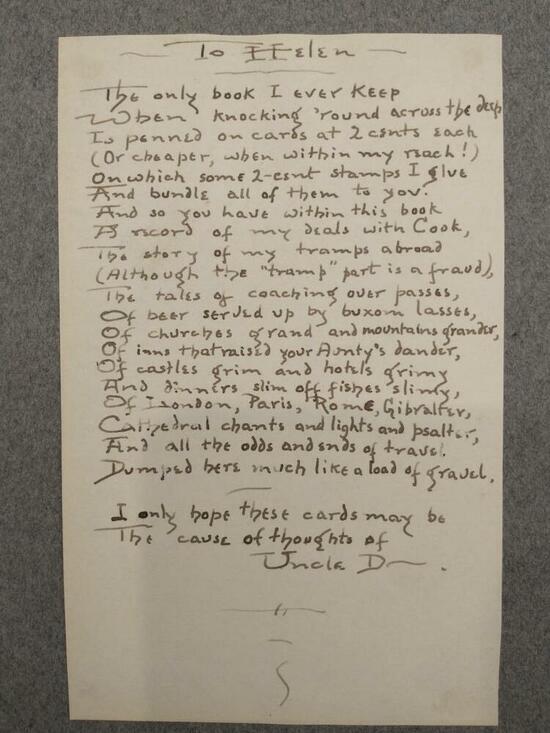 To Helen
The only book I ever Keep
When knocking 'round across the deep
Is penned on cards at 2 cents each
(Or cheaper, when within my reach!)
On which some 2-cent stamps I glue
And bundle all of them to you.
And so you have within this book
A record of my deals with Cook,
The story of my tramps abroad
(Although the "tramp" part is a fraud),
The tales of coaching over passes,
Of beer served up by buxom lasses,
Of churches grand and mountains grander,
Of inns that raised your Aunty's dander,
Of castles grim and hotels grimy
And dinners slim off fishes slimy,
Of London, Paris, Rome, Gibralter,
Cathedral chants and lights and psalter,
And all the odds and ends of travel.
Dumped here much like a load of gravel.
I only hope these cards may be
The cause of thoughts of
Uncle D—.